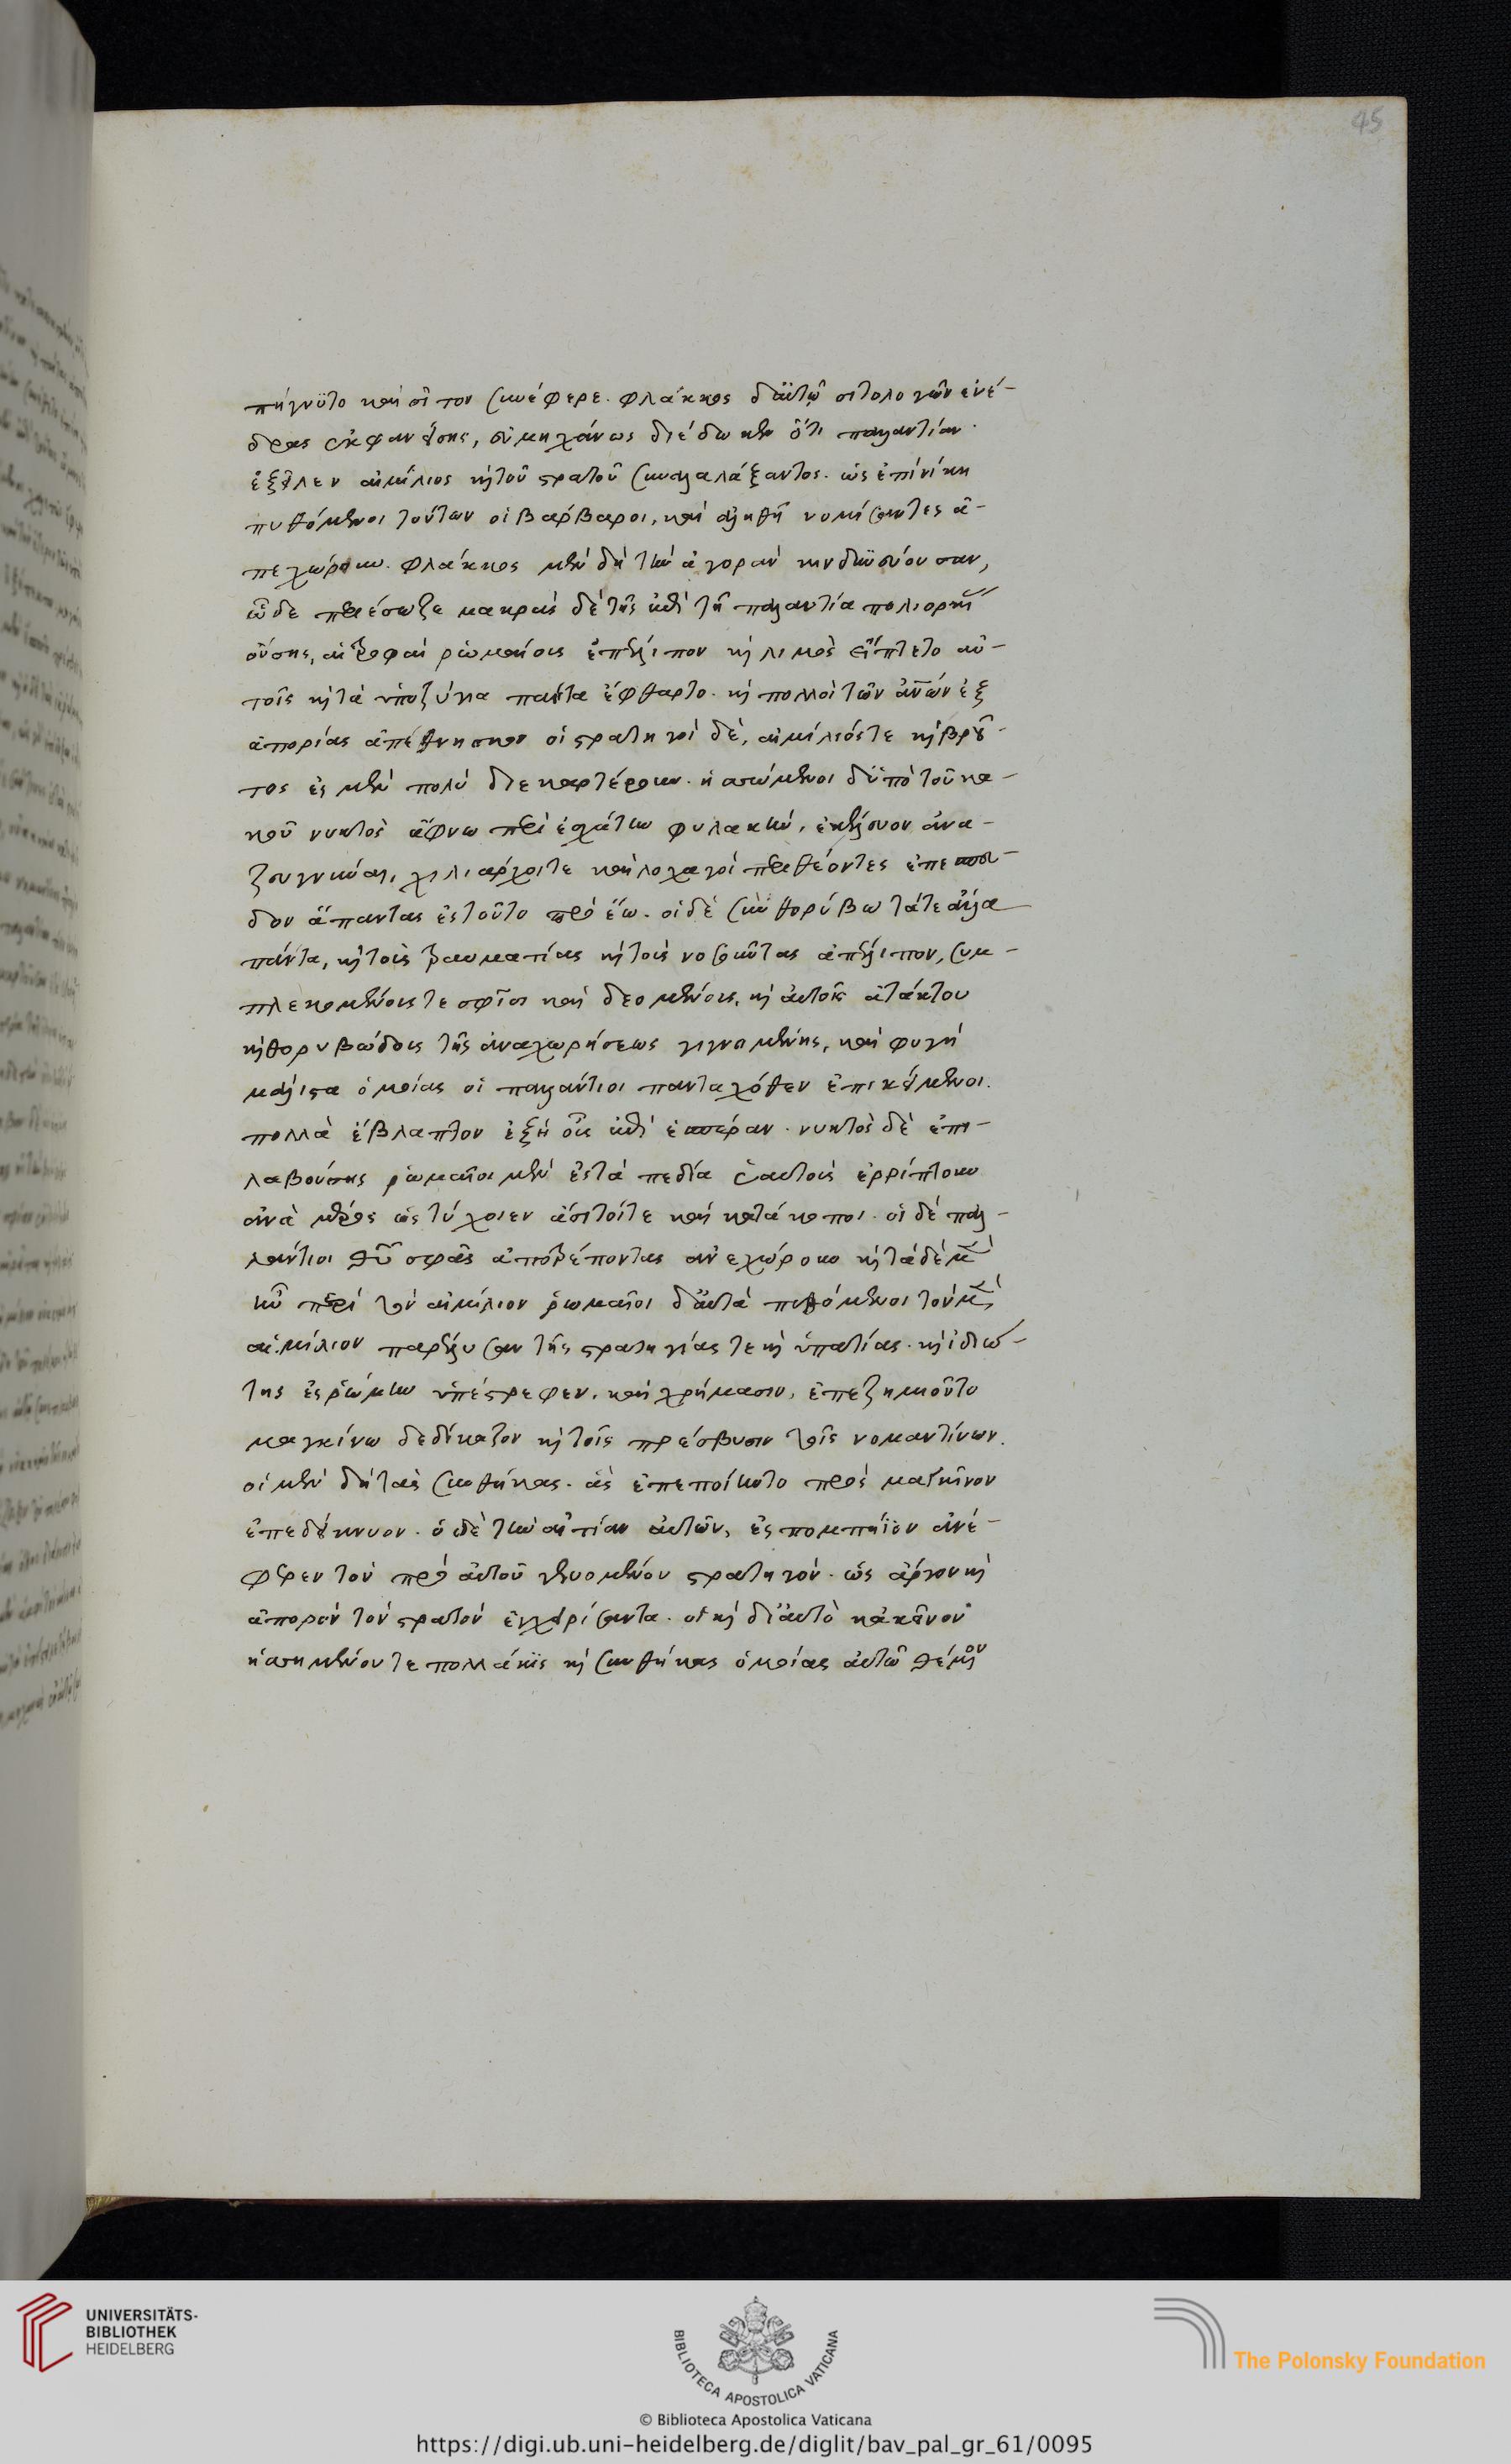 πήγνυτο καὶ σῖτον συνέφερε. φλάκκος δ'αὐτῷ σιτολογῶν ἐνέ-
δρας ἐκφανείσης, εὐμηχάνως διέδωκεν ὅτι παλλαντίαν
ἐξεῖλεν αἰμίλιος καὶ τοῦ στρατοῦ συναλαλάξαντος. ὡς ἐπὶ νίκη
πυθόμενοι τούτων οἱ βάρβαροι, καὶ ἀληθῆ νομίσαντες ἀ-
πεχώρουν. φλάκκος μὲν δὴ τὴν ἀγορὰν κινδυνεύουσαν,
ὧδε περιέσωζε μακρᾶς δὲ τῆς ἐπὶ τῇ παλλαντία πολιορκίας
οὔσης, αἱ τροφαὶ ῥωμαίοις ἐπέλειπον καὶ λιμὸς ἥπτετο αὐ-
τοῖς καὶ τὰ ὑποζύγια πάντα ἔφθαρτο. καὶ πολλοὶ τῶν ἀνῶν ἐξ
ἀπορίας ἀπέθνησκον οἱ στρατηγοὶ δὲ, αἰμίλιός τε καὶ βροῦ-
τος ἐς μὲν πολὺ διεκαρτέρουν. ἡσσώμενοι δ'ὑπὸ τοῦ κα-
κοῦ νυκτὸς ἄφνω περὶ ἐσχάτην φυλακὴν, ἐκέλευον ἀνα-
ζευγνύναι, χιλίαρχοί τε καὶ λοχαγοὶ περιθέοντες ἐπέσπευ-
δον ἅπαντας ἐς τοῦτο πρὸ ἕω. οἱ δὲ σὺν θορύβω τά τε ἄλλα
πάντα, καὶ τοὺς τραυματίας καὶ τοὺς νοσοῦντας ἀπέλιπον, συμ-
πλεκομένους τε σφίσι καὶ δεομένους, καὶ αὐτοῖς ἀτάκτου
καὶ θορυβώδους τῆς ἀναχωρήσεως γιγνομένης, καὶ φυγῇ
μάλιστα ὁμοίας οἱ παλλάντιοι πανταχόθεν ἐπικείμενοι.
πολλὰ ἔβλαπτον ἐξ ἠοῦς ἐπὶ ἑσπέραν. νυκτὸς δὲ ἐπι-
λαβούσης ῥωμαῖοι μὲν ἐς τὰ πεδία ἑαυτοὺς ἐρρίπτουν
ἀνὰ μέρος ὡς τύχοιεν ἄσιτοί τε καὶ κατάκοποι. οἱ δὲ παλ-
λάντιοι θῦ σφᾶς ἀποτρέποντος ἀνεχώρουν καὶ τάδε μὲν
ἦν περὶ τὸν αἰμίλιον ῥωμαῖοι δ'αὐτὰ πυθόμενοι τὸν μὲν
αἰμίλιον παρέλυσαν τῆς στρατηγίας τε καὶ ὑπατίας. καὶ ἰδιώ-
της ἐς ῥώμην ὑπέστρεφεν. καὶ χρήμασιν, ἐπεζημιοῦτο
μαγκίνω δ'ἐδίκαζον καὶ τοῖς πρέσβυσιν τοῖς νομαντίνων.
οἱ μὲν δὴ τὰς συνθήκας. ἃς ἐπεποίηντο πρὸς μαγκῖνον
ἐπεδείκνυον. ὁ δὲ τὴν αἰτίαν αὐτῶν, ἐς πομπήϊον ἀνέ-
φερεν τὸν πρὸ αὐτοῦ γενόμενον στρατηγὸν. ὡς ἀργὸν καὶ
ἄπορον τὸν στρατὸν ἐγχειρίσαντα. καὶ δι'αὐτὸ κἀκεῖνον
ἡσσημένον τε πολλάκις καὶ συνθήκας ὁμοίας αὐτῶ θέμενον
45
UNIVERSITÄTS-
BIBLIOTHEK
HEIDELBERG
BIBLIOTECA APOSTOLICA VATICANA
The Polonsky Foundation
© Biblioteca Apostolica Vaticana
https://digi.ub.uni-heidelberg.de/diglit/bav_pal_gr_61/0095